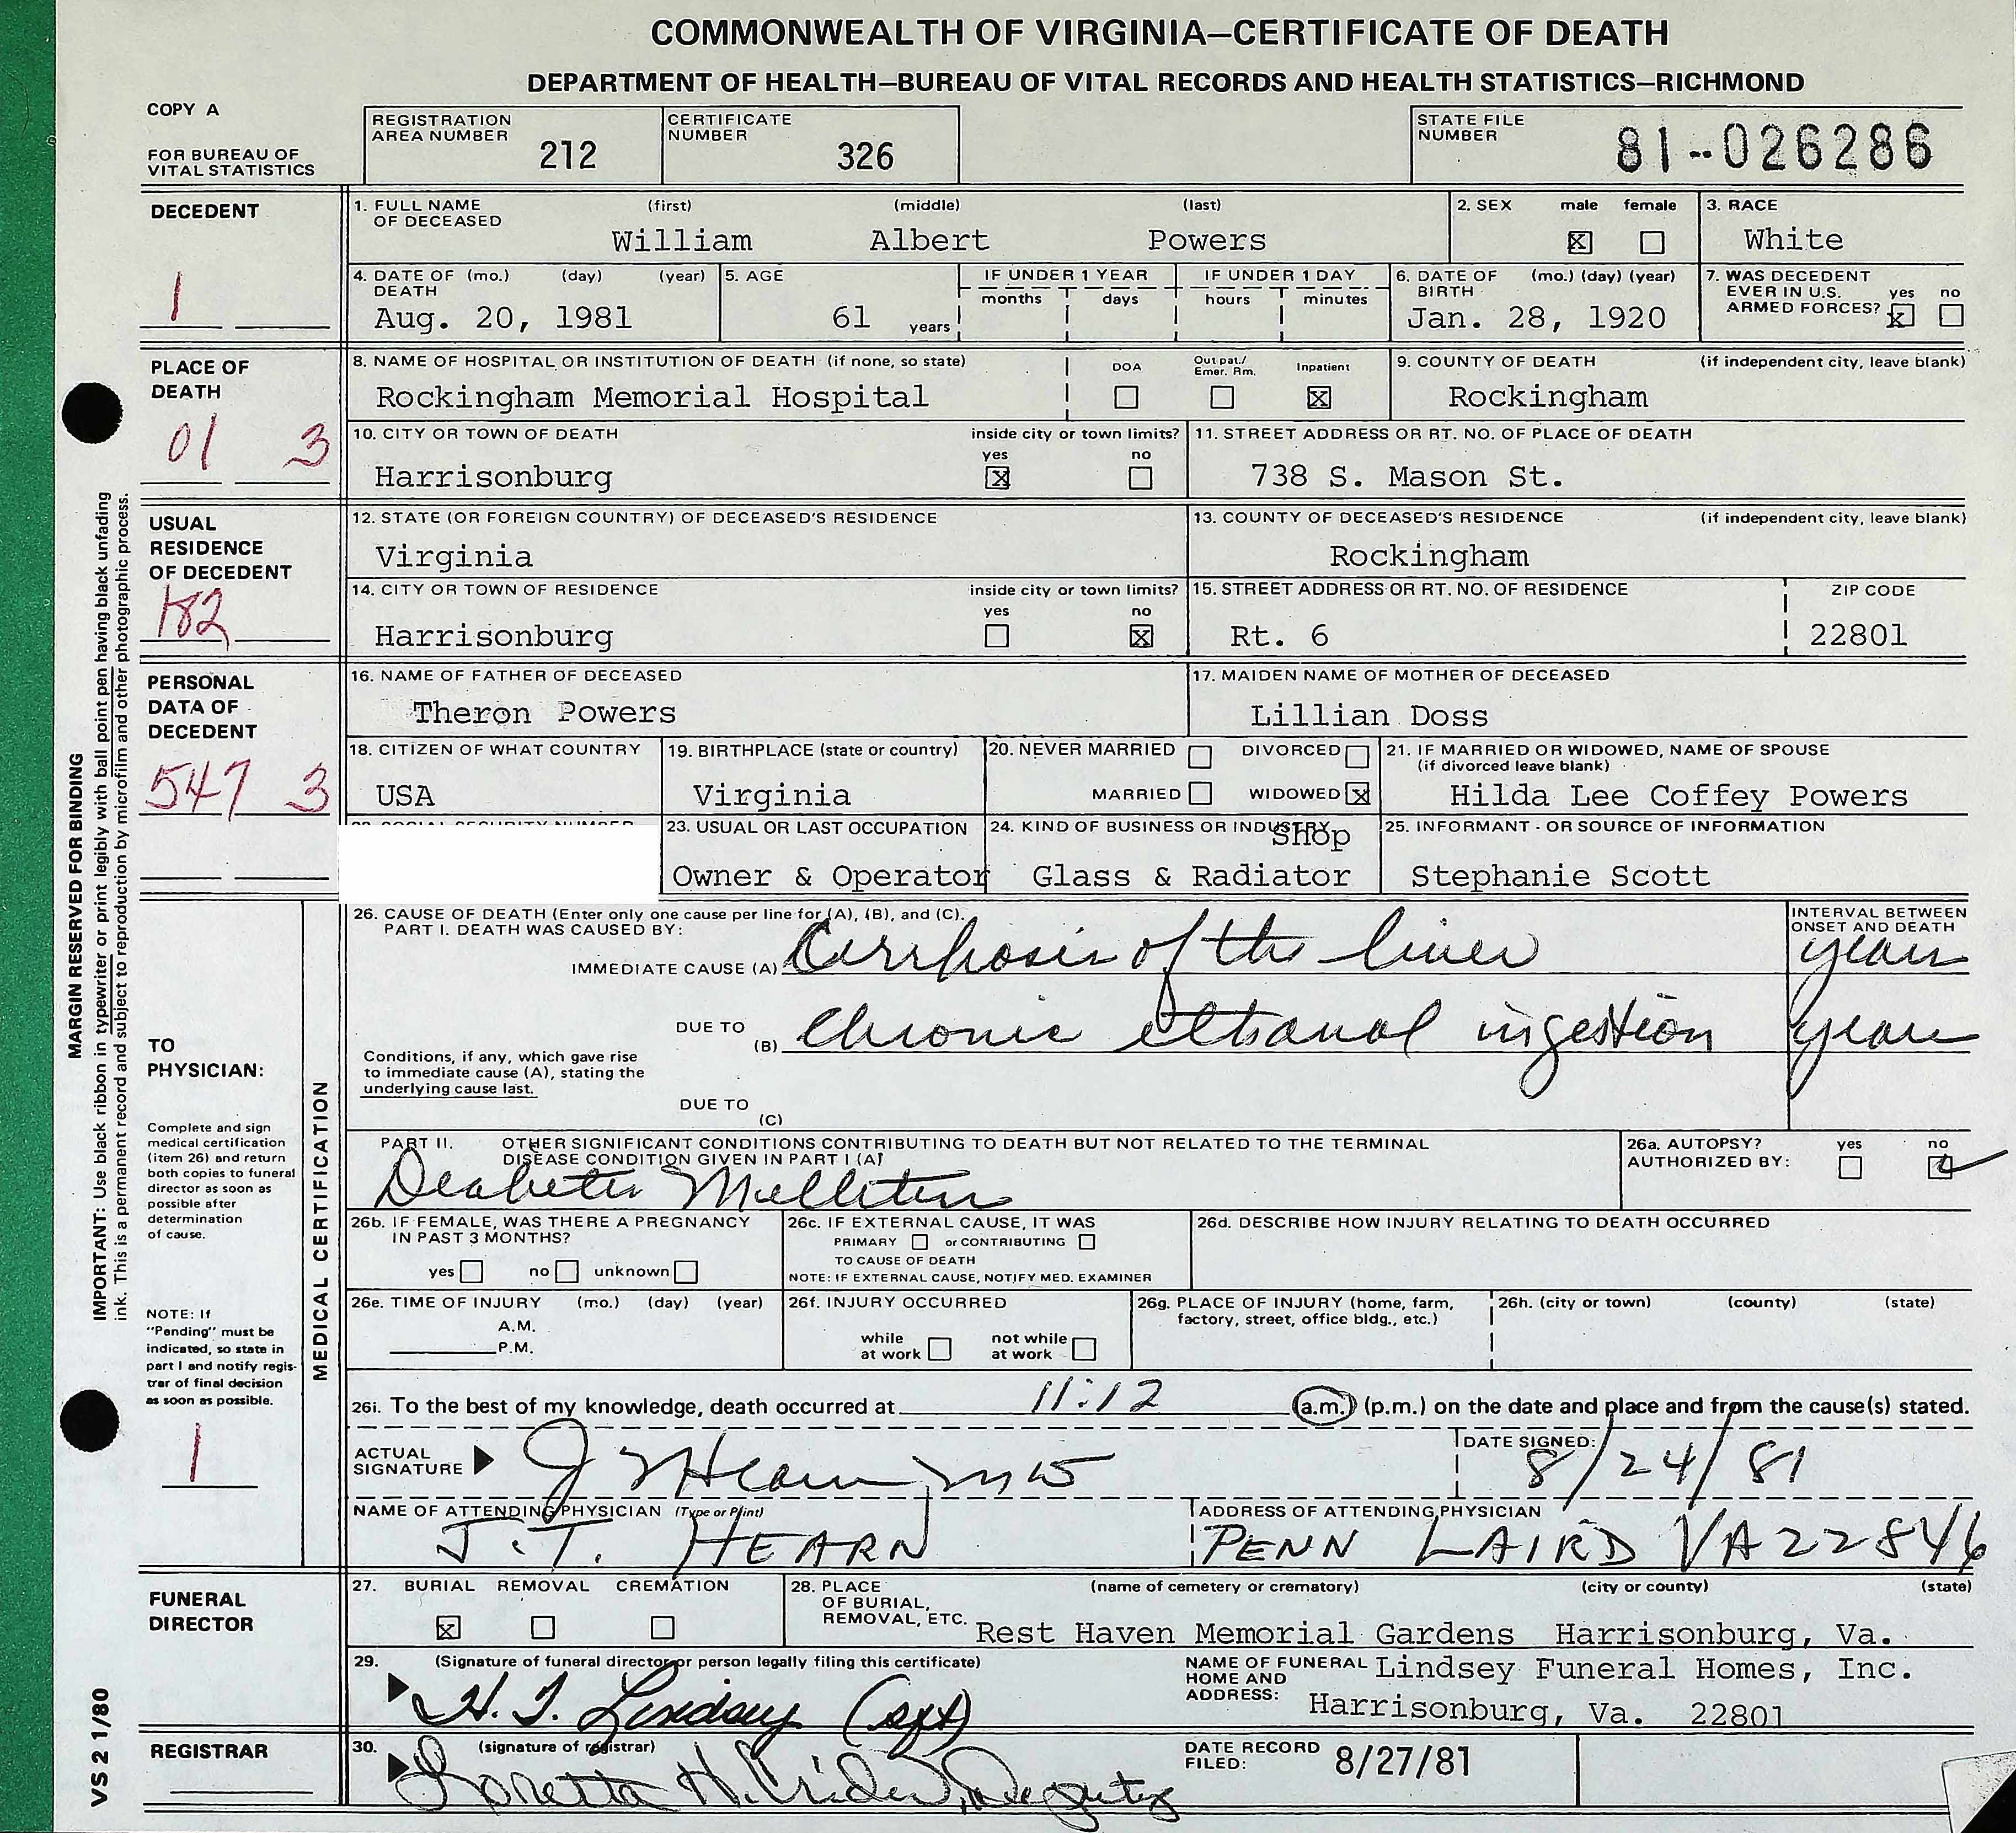 COMMONWEALTH OF VIRGINIA—CERTIFICATE OF DEATH
DEPARTMENT OF HEALTH—BUREAU OF VITAL RECORDS AND HEALTH STATISTICS—RICHMOND
COPY A
FOR BUREAU OF
VITAL STATISTICS
REGISTRATION
AREA NUMBER 212
CERTIFICATE
NUMBER 326
STATE FILE
NUMBER 81--026286
DECEDENT
1
1. FULL NAME (first) (middle) (last)
OF DECEASED
William Albert Powers
2. SEX male female
X
3. RACE
White
4. DATE OF (mo.) (day) (year)
DEATH
Aug. 20, 1981
5. AGE
61 years
IF UNDER 1 YEAR
months days
IF UNDER 1 DAY
hours minutes
6. DATE OF (mo.) (day) (year)
BIRTH
Jan. 28, 1920
7. WAS DECEDENT
EVER IN U.S. yes no
ARMED FORCES? x
PLACE OF
DEATH
01 3
8. NAME OF HOSPITAL OR INSTITUTION OF DEATH (if none, so state)
Rockingham Memorial Hospital
DOA Out pat./ Inpatient
Emer. Rm.
X
9. COUNTY OF DEATH (if independent city, leave blank)
Rockingham
10. CITY OR TOWN OF DEATH inside city or town limits?
yes no
Harrisonburg X
11. STREET ADDRESS OR RT. NO. OF PLACE OF DEATH
738 S. Mason St.
USUAL
RESIDENCE
OF DECEDENT
182
12. STATE (OR FOREIGN COUNTRY) OF DECEASED'S RESIDENCE
Virginia
13. COUNTY OF DECEASED'S RESIDENCE (if independent city, leave blank)
Rockingham
14. CITY OR TOWN OF RESIDENCE inside city or town limits?
yes no
Harrisonburg X
15. STREET ADDRESS OR RT. NO. OF RESIDENCE ZIP CODE
Rt. 6 22801
PERSONAL
DATA OF
DECEDENT
547 3
16. NAME OF FATHER OF DECEASED
Theron Powers
17. MAIDEN NAME OF MOTHER OF DECEASED
Lillian Doss
18. CITIZEN OF WHAT COUNTRY
USA
19. BIRTHPLACE (state or country)
Virginia
20. NEVER MARRIED DIVORCED
MARRIED WIDOWED X
21. IF MARRIED OR WIDOWED, NAME OF SPOUSE
(if divorced leave blank)
Hilda Lee Coffey Powers
23. USUAL OR LAST OCCUPATION
Owner & Operator
24. KIND OF BUSINESS OR INDUSTRY
Shop
Glass & Radiator
25. INFORMANT - OR SOURCE OF INFORMATION
Stephanie Scott
MARGIN RESERVED FOR BINDING
IMPORTANT: Use black ribbon in typewriter or print legibly with ball point pen having black unfading
ink. This is a permanent record and subject to reproduction by microfilm and other photographic process.
TO
PHYSICIAN:
Complete and sign
medical certification
(item 26) and return
both copies to funeral
director as soon as
possible after
determination
of cause.
NOTE: If
"Pending" must be
indicated, so state in
part I and notify regis-
trar of final decision
as soon as possible.
1
MEDICAL CERTIFICATION
26. CAUSE OF DEATH (Enter only one cause per line for (A), (B), and (C).
PART I. DEATH WAS CAUSED BY:
INTERVAL BETWEEN
ONSET AND DEATH
IMMEDIATE CAUSE (A) Cirrhosis of the liver years
DUE TO
(B) Chronic ethanol ingestion years
Conditions, if any, which gave rise
to immediate cause (A), stating the
underlying cause last.
DUE TO
(C)
PART II. OTHER SIGNIFICANT CONDITIONS CONTRIBUTING TO DEATH BUT NOT RELATED TO THE TERMINAL
DISEASE CONDITION GIVEN IN PART I (A)
Diabetes Mellitus
26a. AUTOPSY? yes no
AUTHORIZED BY:
26b. IF FEMALE, WAS THERE A PREGNANCY
IN PAST 3 MONTHS?
yes no unknown
26c. IF EXTERNAL CAUSE, IT WAS
PRIMARY or CONTRIBUTING
TO CAUSE OF DEATH
NOTE: IF EXTERNAL CAUSE, NOTIFY MED. EXAMINER
26d. DESCRIBE HOW INJURY RELATING TO DEATH OCCURRED
26e. TIME OF INJURY (mo.) (day) (year)
A.M.
P.M.
26f. INJURY OCCURRED
while not while
at work at work
26g. PLACE OF INJURY (home, farm,
factory, street, office bldg., etc.)
26h. (city or town) (county) (state)
26i. To the best of my knowledge, death occurred at 11:12 (a.m.) (p.m.) on the date and place and from the cause(s) stated.
ACTUAL
SIGNATURE J T Hearn MD
DATE SIGNED:
8/24/81
NAME OF ATTENDING PHYSICIAN (Type or Print)
J.T. HEARN
ADDRESS OF ATTENDING PHYSICIAN
PENN LAIRD VA 22846
FUNERAL
DIRECTOR
27. BURIAL REMOVAL CREMATION
X
28. PLACE (name of cemetery or crematory) (city or county) (state)
OF BURIAL,
REMOVAL, ETC. Rest Haven Memorial Gardens Harrisonburg, Va.
29. (Signature of funeral director or person legally filing this certificate)
H. T. Lindsey
NAME OF FUNERAL Lindsey Funeral Homes, Inc.
HOME AND
ADDRESS: Harrisonburg, Va. 22801
REGISTRAR
30. (signature of registrar)
Loretta H. Crider, Deputy
DATE RECORD
FILED: 8/27/81
VS 2 1/80